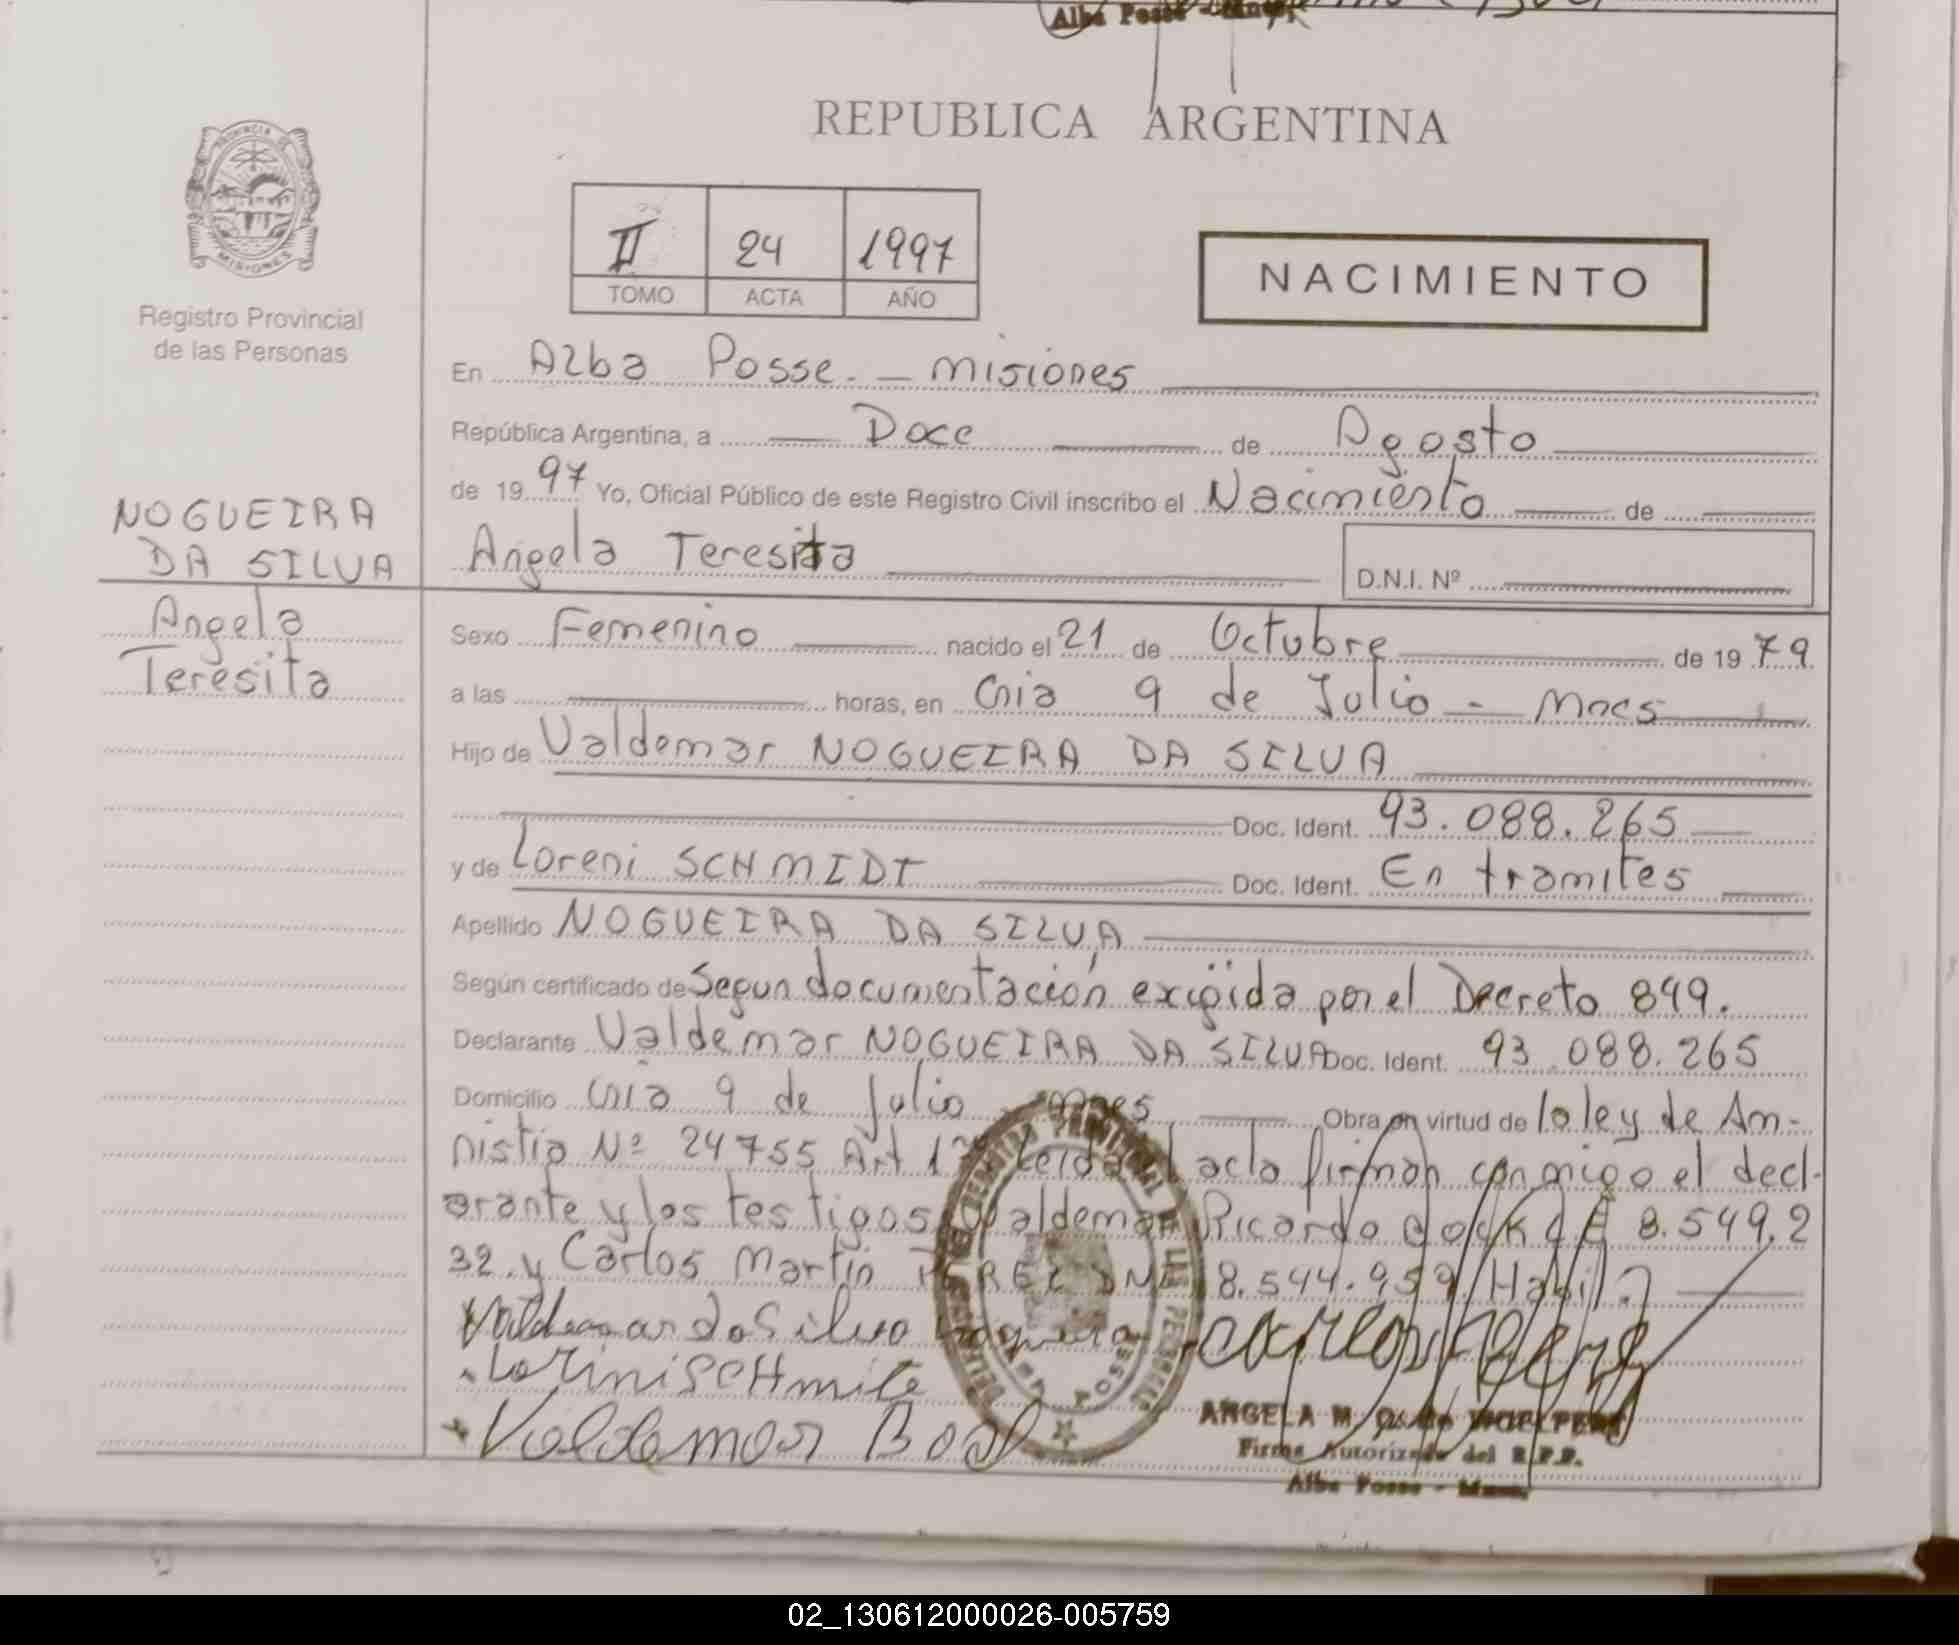 Alba Posse - Mnes,
REPUBLICA ARGENTINA
PROVINCIA DE
MISIONES
Registro Provincial
de las Personas
II 24 1997
TOMO ACTA AÑO
NACIMIENTO
En Alba Posse. - Misiones
República Argentina, a Doce de Agosto
de 1997 Yo, Oficial Público de este Registro Civil inscribo el Nacimiento de
NOGUEIRA
DA SILVA
Angela Teresita D.N.I. Nº
Angela
Teresita
Sexo Femenino nacido el 21 de Octubre de 1979
a las horas, en Cnia 9 de Julio - Mnes
Hijo de Valdemar NOGUEIRA DA SILVA
Doc. Ident. 93.088.265
y de Loreni SCHMIDT Doc. Ident. En tramites
Apellido NOGUEIRA DA SILVA
Según certificado de Segun documentación exigida por el Decreto 849.
Declarante Valdemar NOGUEIRA DA SILVA Doc. Ident. 93.088.265
Domicilio Cnia 9 de Julio - Mnes Obra en virtud de la ley de Am-
nistia Nº 24755 Art 1º Leida el acta firman conmigo el decl-
arante y los testigos Valdemar Ricardo
8.549.2
32 y Carlos Martin PEREZ DNI 8.544.959
Valdemar da Silva
Lorini SCHmite
Valdemar
ANGELA M.
Firma Autorizada del R.P.P.
Alba Posse - Mnes,
02_130612000026-005759